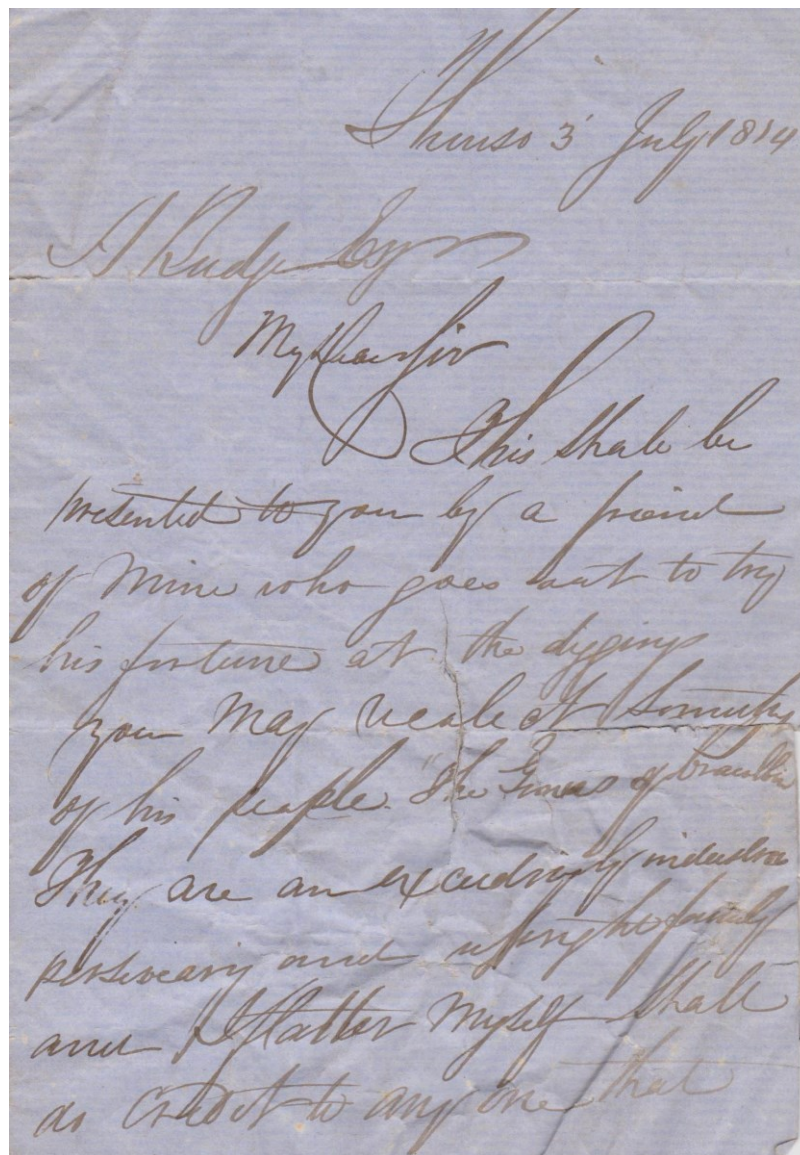 Thurso 3 July 1854
A Rudge Esqr
My dear Sir
This shall be
presented to you by a friend
of mine who goes out to try
his fortune at the diggings
you may recolect something
of his people "The of
They are an exceedingly industrious
persevering and upright family
and I flatter myself shall
do credit to any one that